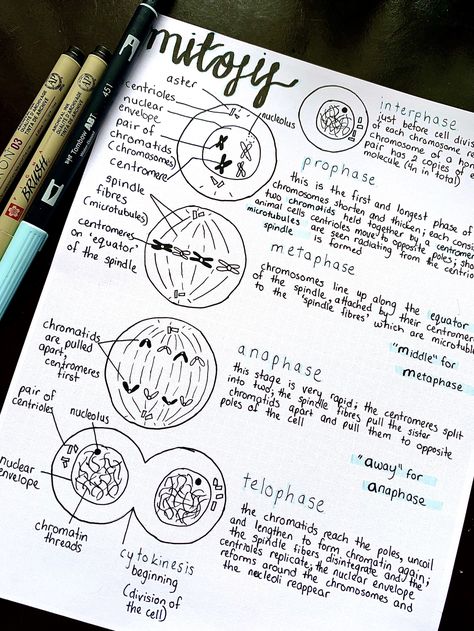 mitosis
interphase
just before cell divi
of each chromosome
chromosome of a ho
pair has 2 copies of
molecule (4n in total)
aster
centrioles
nuclear
envelope
nucleolus
pair of
chromatids
(chromosomes)
centromere
prophase
this is the first and longest phase of
chromosomes shorten and thicken; each cons
two chromatids held together by centromer
animal cells centrioles move to opposite poles; sho
microtubules are seen radiating from the centrio
spindle is formed
spindle
fibres
(microtubules)
centromeres
on 'equator'
of the spindle
metaphase
chromosomes line up along the equator
of the spindle, attached by their centromer
to the 'spindle fibres' which are microtubul
"middle" for
metaphase
chromatids
are pulled
apart,
centromeres
first
anaphase
this stage is very rapid; the centromeres split
into two; the spindle fibres pull the sister
chromatids apart and pull them to opposite
poles of the cell
"away" for
anaphase
pair of
centrioles
nucleolus
nuclear
envelope
chromatin
threads
cytokinesis
beginning
(division of
the cell)
telophase
the chromatids reach the poles, uncoil
and lengthen to form chromatin again;
the spindle fibers disintegrate and the
centrioles replicate; the nuclear envelope
reforms around the chromosomes and
the nucleoli reappear
03
BRUSH
Tombow ABT
451